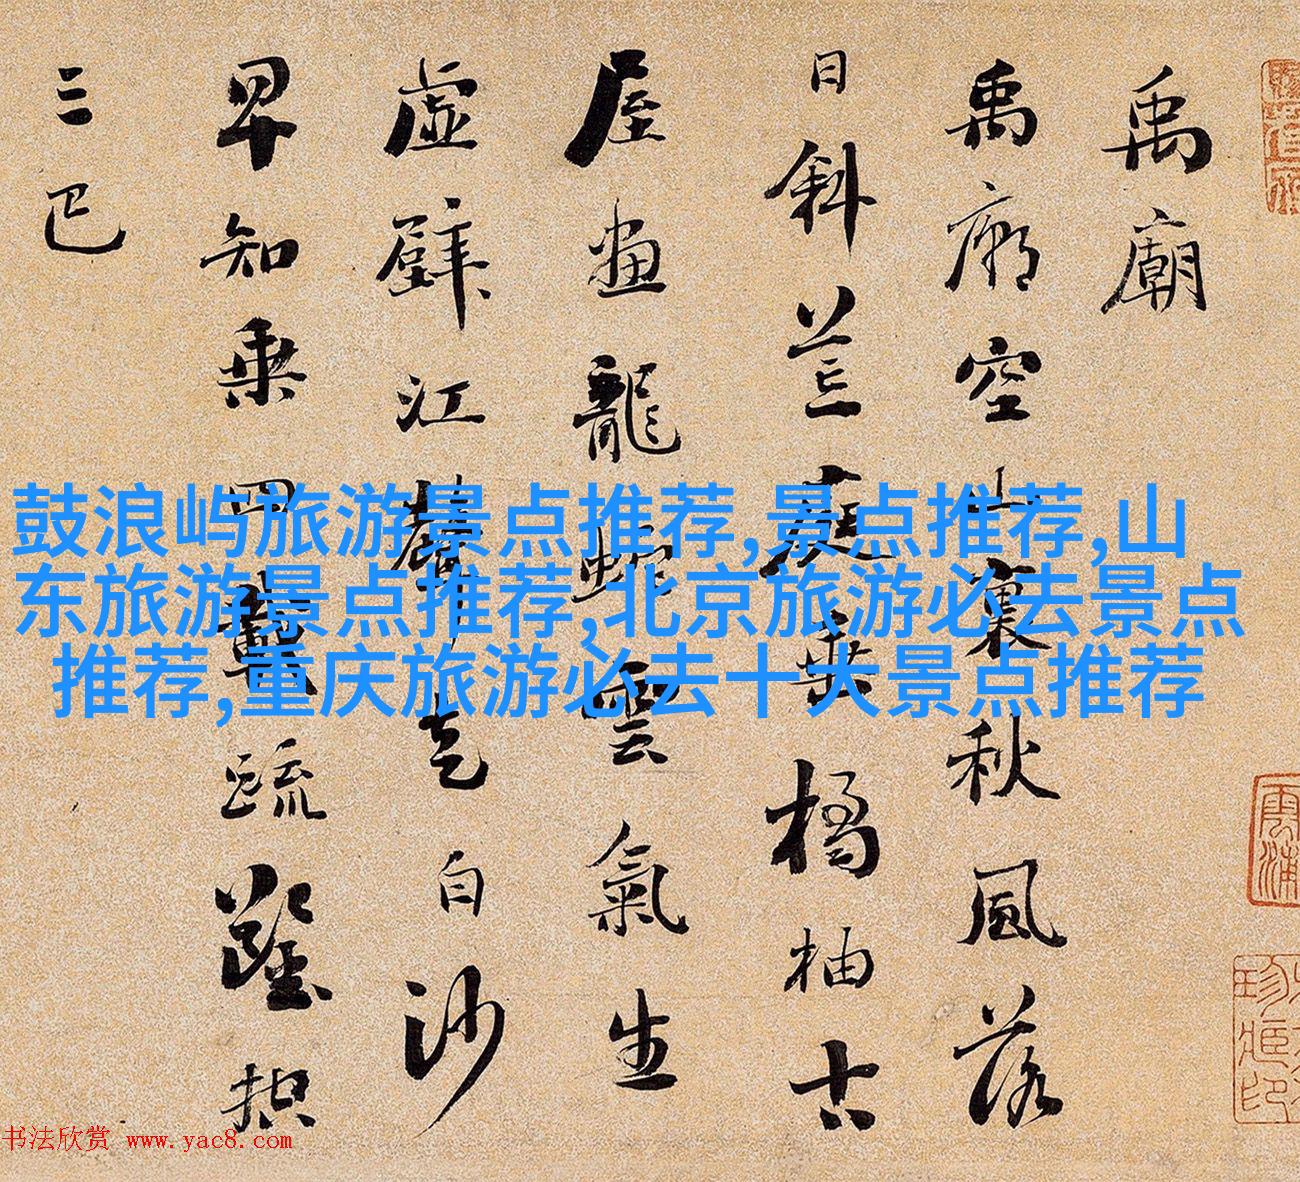 禹廟
禹廟空山裏秋風落
日斜荒庭垂橘柚古
屋畫龍蛇雲氣生
虛壁江聲走白沙
早知乘四載疏鑿控
三巴
鼓浪屿旅游景点推荐,景点推荐,山
东旅游景点推荐,北京旅游必去景点
推荐,重庆旅游必去十大景点推荐
书法欣赏 www.yac8.com